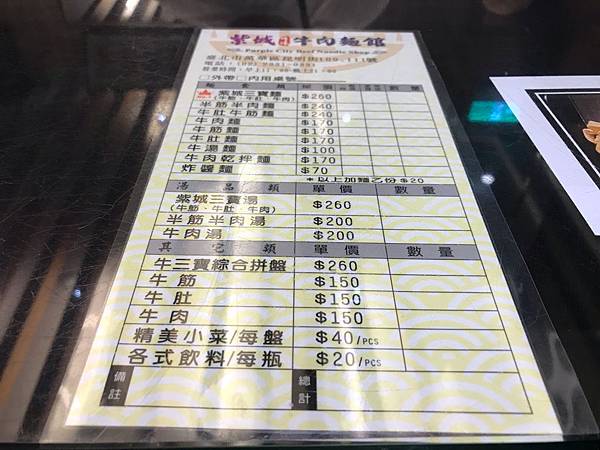 紫城 牛肉麵館
Purple City Beef Noodle Shop
臺北市萬華區昆明街189.111號
□外帶 □內用桌號
麵食類 單價 數量
紫城三寶麵 (牛筋、牛肚、牛肉) $260
半筋半肉麵 $240
牛肚牛筋麵 $240
牛肉麵 $170
牛筋麵 $170
牛肚麵 $170
牛湯麵 $100
牛肉乾拌麵 $170
炸醬麵 $70
*以上加麵乙份$20
湯品類 單價 數量
紫城三寶湯 (牛筋、牛肚、牛肉) $260
半筋半肉湯 $200
牛肉湯 $200
其它類 單價 數量
牛三寶綜合拼盤 $260
牛筋 $150
牛肚 $150
牛肉 $150
精美小菜/每盤 $40/PCS
各式飲料/每瓶 $20/PCS
備註 總計